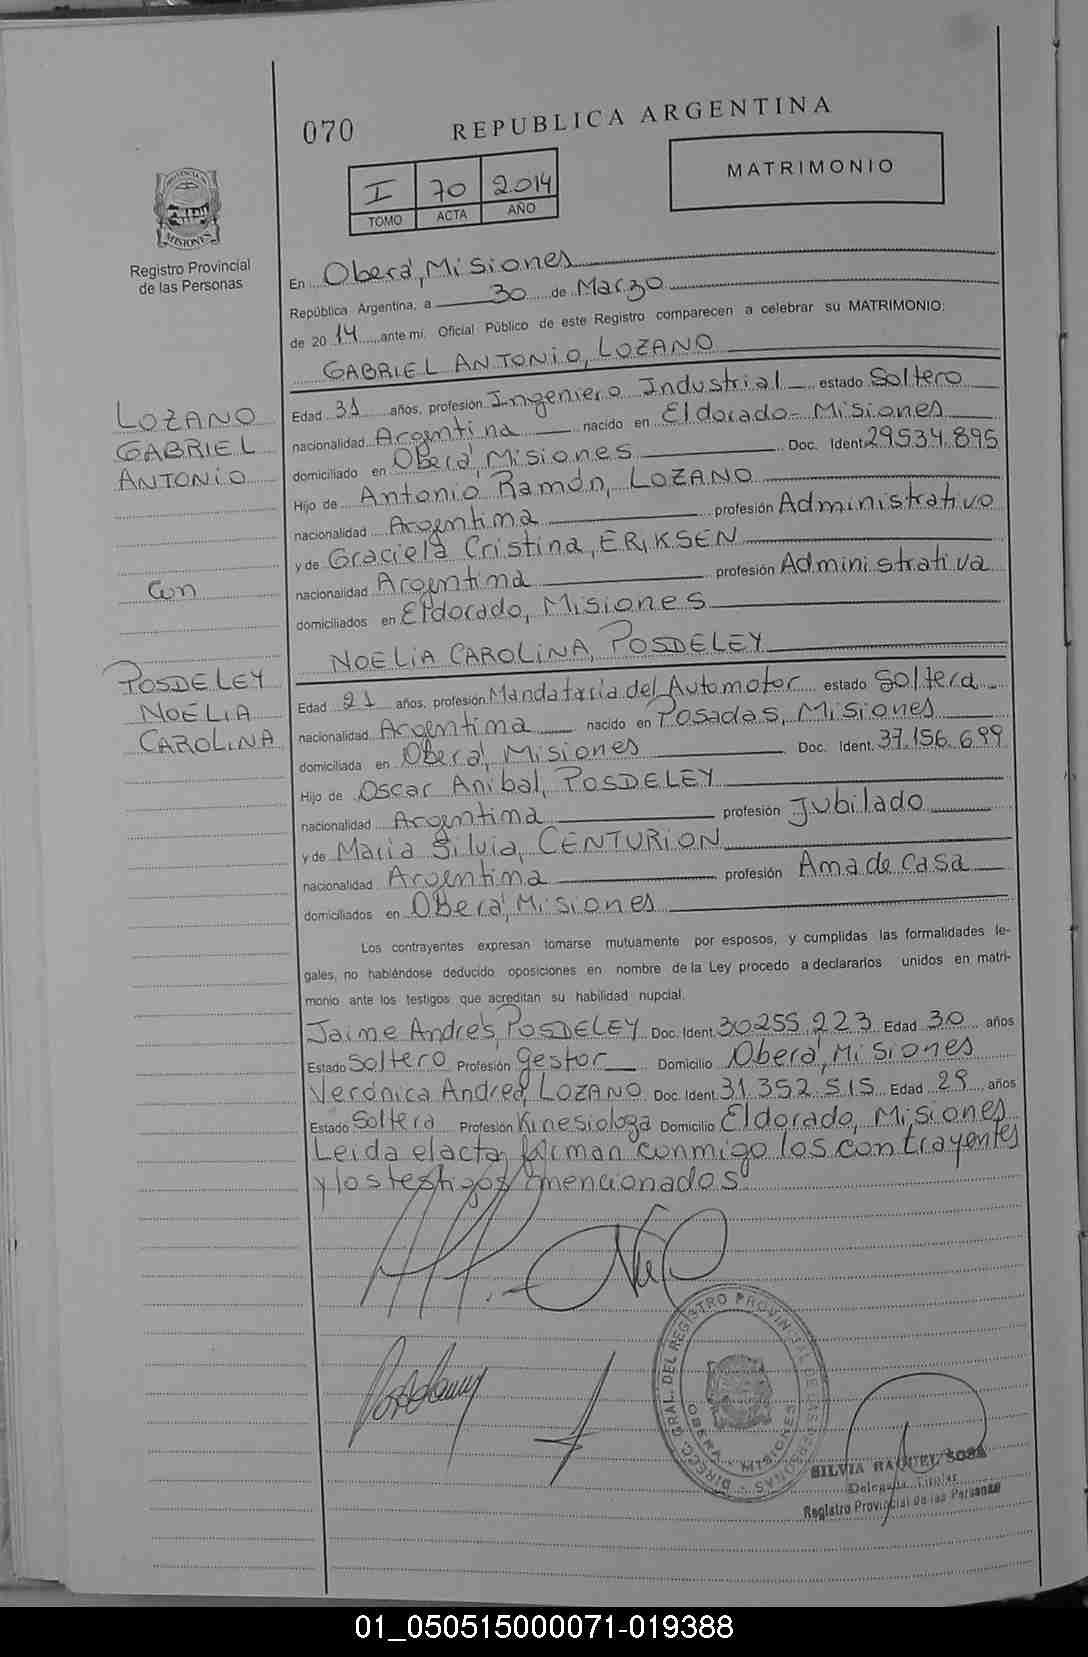 070
REPUBLICA ARGENTINA
I 70 2.014
TOMO ACTA AÑO
MATRIMONIO
PROVINCIA
MISIONES
Registro Provincial
de las Personas
En Oberá, Misiones
República Argentina, a 30 de Marzo
de 2014 ante mi, Oficial Público de este Registro comparecen a celebrar su MATRIMONIO:
GABRIEL ANTONIO, LOZANO
LOZANO
GABRIEL
ANTONIO
Edad 31 años, profesión Ingeniero Industrial estado Soltero
nacionalidad Argentina nacido en Eldorado- Misiones
domiciliado en Oberá, Misiones Doc. Ident. 29.534.895
Hijo de Antonio Ramón, LOZANO
nacionalidad Argentina profesión Administrativo
y de Graciela Cristina, ERIKSEN
con
nacionalidad Argentina profesión Administrativa
domiciliados en Eldorado, Misiones
NOELIA CAROLINA, POSDELEY
POSDELEY
NOELIA
CAROLINA
Edad 21 años, profesión Mandataria del Automotor estado Soltera
nacionalidad Argentina nacido en Posadas, Misiones
domiciliada en Oberá, Misiones Doc. Ident. 37.156.699
Hijo de Oscar Anibal, POSDELEY
nacionalidad Argentina profesión Jubilado
y de Maria Silvia, CENTURION
nacionalidad Argentina profesión Ama de casa
domiciliados en Oberá, Misiones
Los contrayentes expresan tomarse mutuamente por esposos, y cumplidas las formalidades le-
gales, no habiéndose deducido oposiciones en nombre de la Ley procedo a declararlos unidos en matri-
monio ante los testigos que acreditan su habilidad nupcial.
Jaime Andrés, POSDELEY Doc. Ident. 30255.223 Edad 30 años
Estado Soltero Profesión gestor Domicilio Oberá, Misiones
Verónica Andrea, LOZANO Doc. Ident. 31.352.515 Edad 29 años
Estado Soltera Profesión Kinesiologa Domicilio Eldorado, Misiones
Leida el acta, firman conmigo los contrayentes
y los testigos mencionados
DIRECC. GRAL. DEL REGISTRO PROVINCIAL DE LAS PERSONAS
OBERA - MISIONES
SILVIA RAQUEL SOSA
Delegada Titular
Registro Provincial de las Personas
01_050515000071-019388